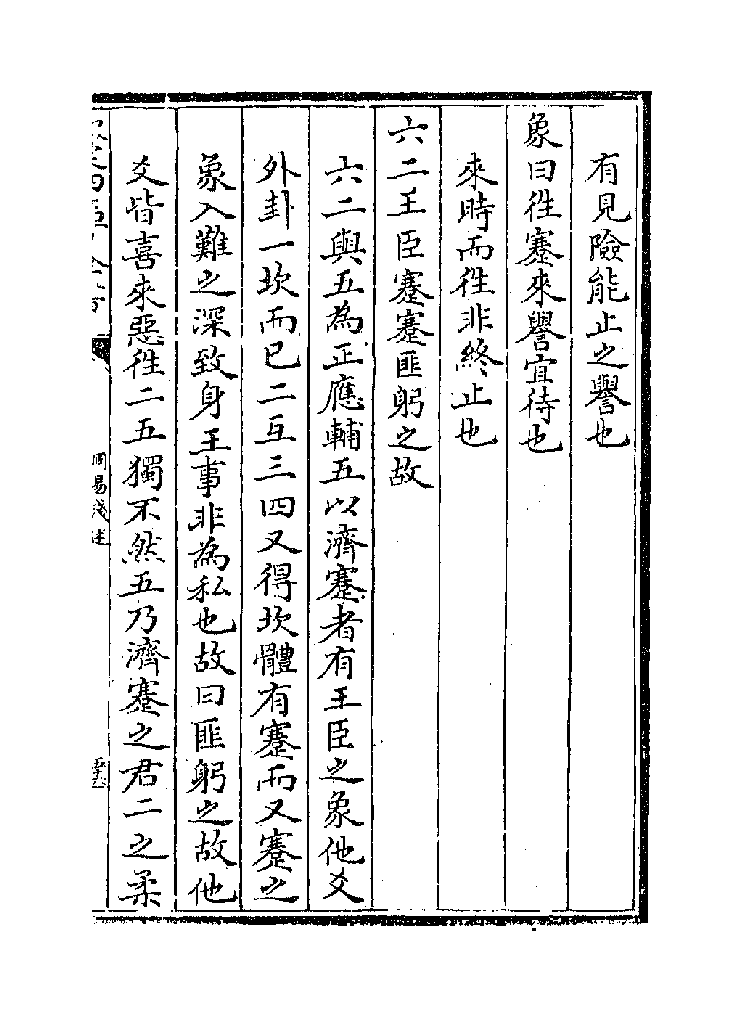 有見險能止之譽也
象曰往蹇來譽宜待也
來時而往非終止也
六二王臣蹇蹇匪躬之故
六二與五為正應輔五以濟蹇者有王臣之象他爻
外卦一坎而已二互三四又得坎體有蹇而又蹇之
象入難之深致身王事非為私也故曰匪躬之故他
爻皆喜來惡往二五獨不然五乃濟蹇之君二之柔
周易淺述